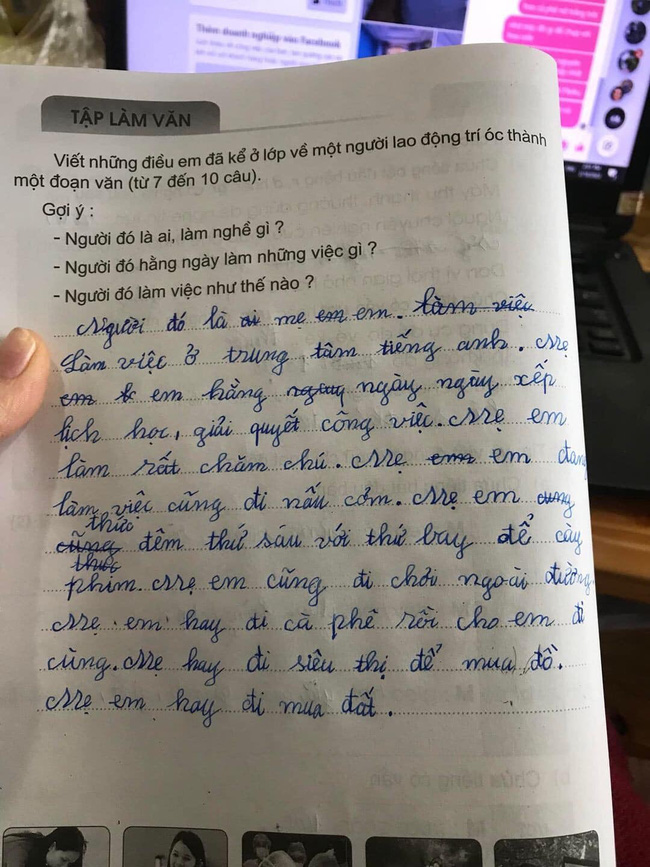 Thêm doanh nghiệp vào Facebook
TẬP LÀM VĂN
Viết những điều em đã kể ở lớp về một người lao động trí óc thành
một đoạn văn (từ 7 đến 10 câu).
Gợi ý :
- Người đó là ai, làm nghề gì ?
- Người đó hằng ngày làm những việc gì ?
- Người đó làm việc như thế nào ?
Người đó là ai mẹ em em. làm việc
Làm việc ở trung tâm tiếng anh. Mẹ
em em hằng ngày ngày ngày xếp
lịch học, giải quyết công việc. Mẹ em
làm rất chăm chú. Mẹ em em đang
làm việc cũng đi nấu cơm. Mẹ em cũng
thức
cũng đêm thứ sáu với thứ bay để cày
thức
phim. Mẹ em cũng đi chơi ngoài đường.
Mẹ em hay đi cà phê rồi cho em đi
cùng. Mẹ hay đi siêu thị để mua đồ.
Mẹ em hay đi mua đất.